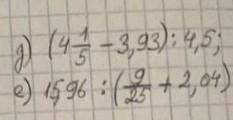 д) (4 1/5 - 3,93) : 4,5;
е) 15,96 : (9/25 + 2,04)